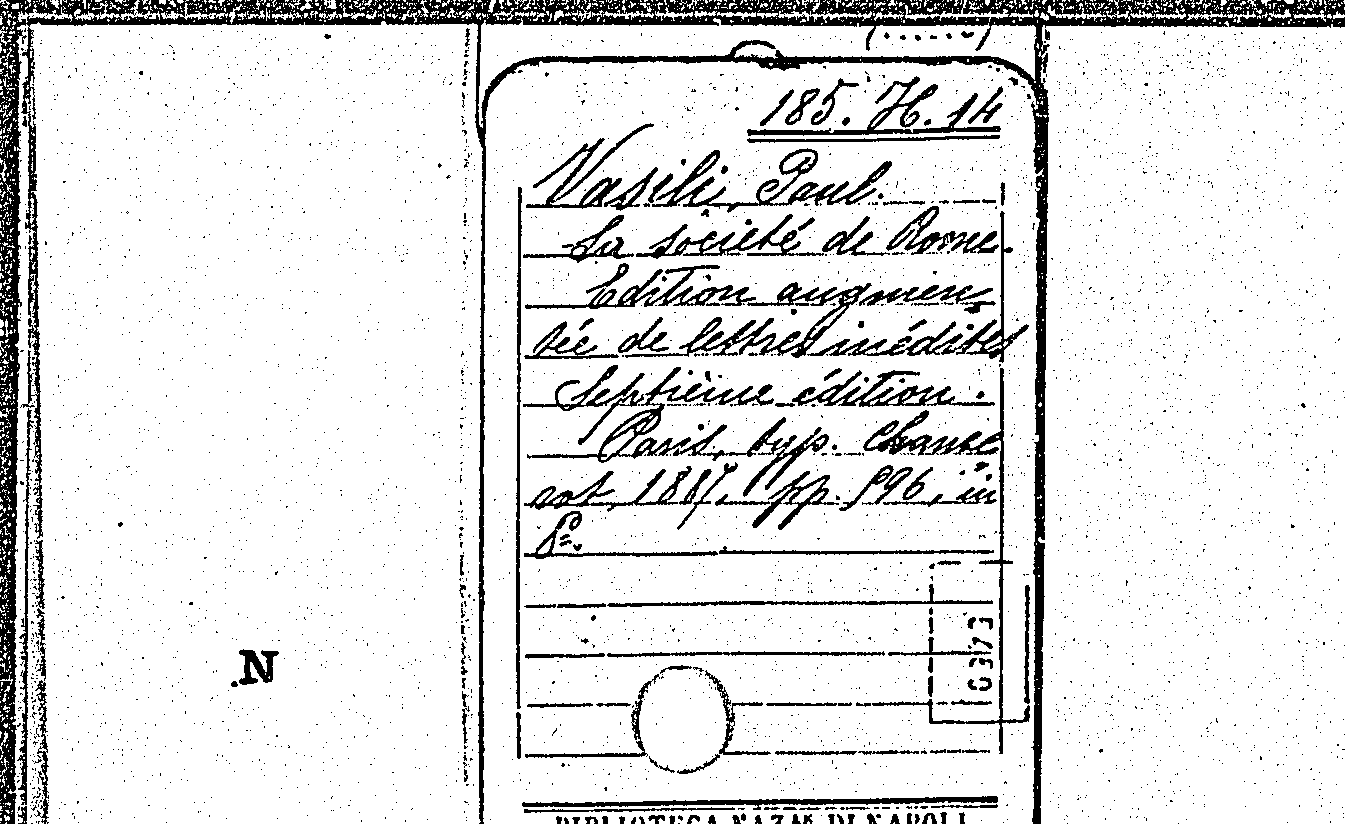 185. H. 14
Vasili, Paul.
La société de Rome.
Edition augmen
tée de lettres inédites
Septième édition.
Paris, typ. Chame
rot, 1887, pp. 896, in
8º.
N
BIBLIOTECA NAZ.LE DI NAPOLI